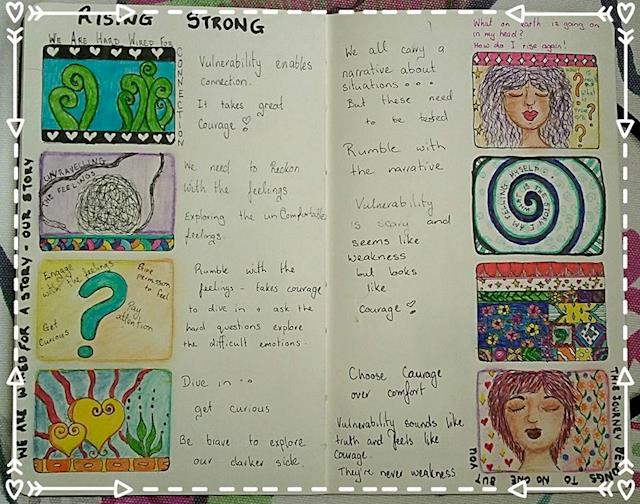 RISING STRONG
WE ARE HARD WIRED FOR
CONNECTION
Vulnerability enables
connection.
It takes great
Courage!
UNRAVELLING
THE FEELINGS
We need to Reckon
With the feelings
Exploring the unComfortable
feelings.
Engage
with the feelings
Give
permission
to feel
Get
Curious
Pay
attention
?
Rumble with the
feelings - takes courage
to dive in + ask the
hard questions explore
the difficult emotions.
Dive in
get curious
Be brave to explore
our darker side.
WE ARE WIRED FOR A STORY - OUR STORY
We all carry a
narrative about
situations...
But these need
to be tested
Rumble with
the narrative
Vulnerability
is scary and
seems like
weakness
but looks
like
courage!
Choose Courage
over comfort
Vulnerability sounds like
truth and feels like
Courage.
They're never weakness
What on earth is going on
in my head?
How do I rise again!
WHAT IS THE STORY I AM TELLING MYSELF...
THIS JOURNEY BELONGS TO NO ONE BUT
YOU